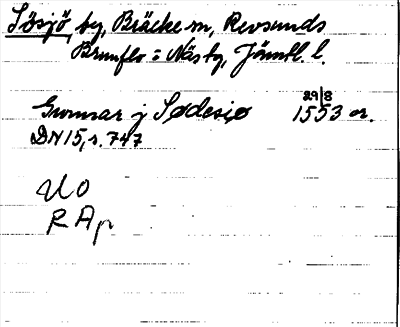 Sösjö, by, Bräcke sn, Revsunds
Brunflo : Näs tg, Jämtl. l.
Gunnar j Sødesiø 29/8 1553 or.
DN 15, s. 747
UO
RAp